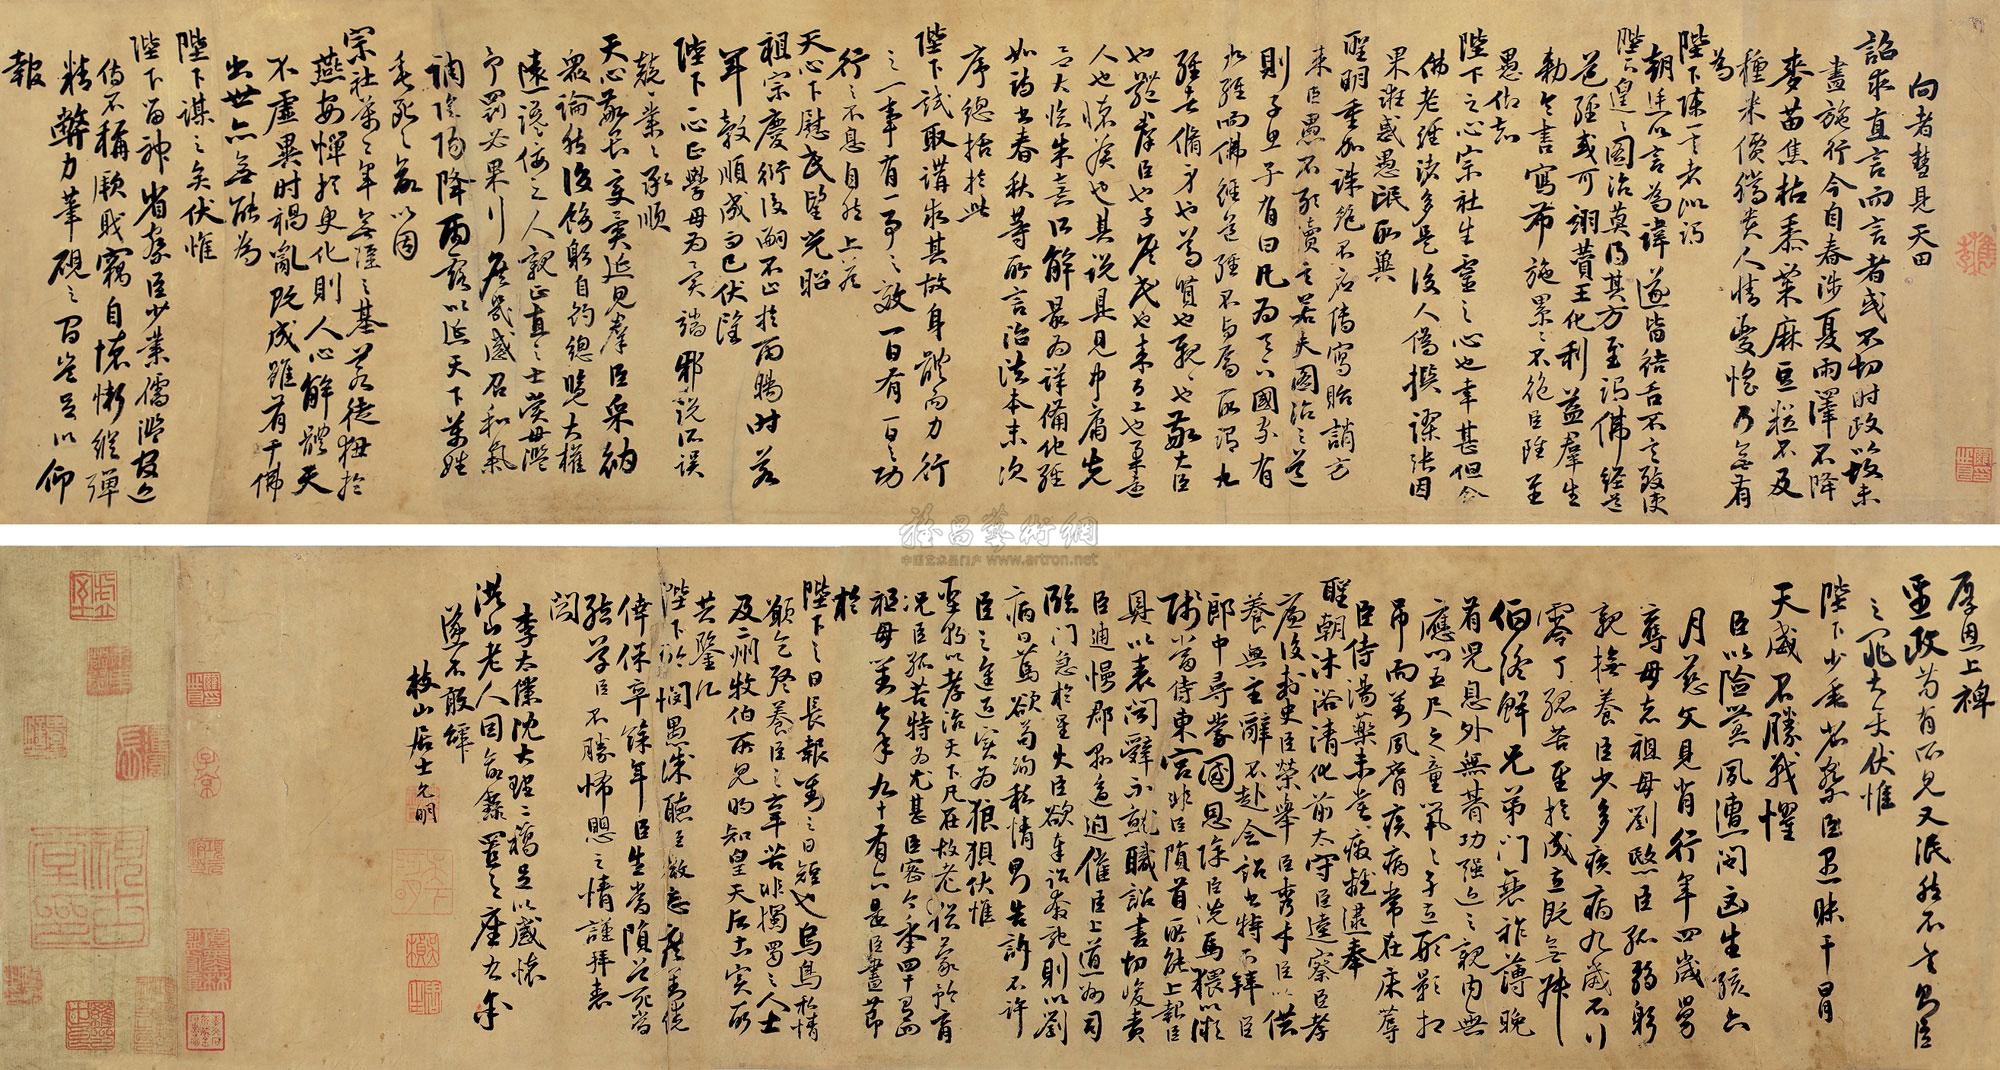 向者彗見天田
詔求直言而言者或不切时政以故未
盡施行今自春涉夏雨澤不降
麥苗焦枯黍粟麻豆粒不及
種米價騰贵人情憂惶乃無有
為
陛下陳一言者以謂
朝廷以言為諱遂皆結舌不言致使
陛下遑遑圖治莫得其方至謂佛經道
范經或可翊贊王化利益羣生
勅令書寫布施累累不絶臣陛至
愚仰知
陛下之心宗社生靈之心也幸甚但今
佛老經諸多是後人偽撰謬張因
果誑惑愚氓取與
聖明垂加誅絶不后傳寫貽誚方
来臣愚不敢瀆言若夫圖治之道
則子思子有曰凡為天下國家有
九經而佛經道經不與焉所謂九
經者脩身也尊賢也親親也敬大臣
也體羣臣也子庶民也来百工也柔遠
人也懷諸侯也其說具見中庸先
正大儒朱熹所解最為詳備他經
如詩书春秋等所言治法本末次
序總括於此
陛下試取講求其故身體而力行
之一事有一事之效一日有一日之功
行之不息自然上答
天心下慰民望光昭
祖宗慶衍後嗣不止於雨暘时若
年穀順成而已伏望
陛下一心正學毋為異端邪說所误
兢兢業業承順
天心敬天变實延見羣臣采納
衆論然後飭躬自約總覽大權
遠讒佞之人親正直之士赏毋濫
予罰必果行庶幾感召和氣
調陰陽降雨露以延天下萬姓
垂死之命以固
宗社萬萬年無涯之基若徒狃於
燕安憚於更化則人心解體天
不虛異时禍亂既成雖有千佛
出世亦無能為
陛下謀之矣伏惟
陛下留神省察臣少業儒濫竽近
侍不稱厥職竊自惰懒縱殫
精竭力筆硯之間豈足以仰
報
厚恩上裨
聖政苟有所見又泯然不言則臣
之罪大矣伏惟
陛下少垂省察臣愚昧干冒
天威不勝戰懼
臣以險釁夙遭閔凶生孩六
月慈父見背行年四歲舅
奪母志祖母劉愍臣孤弱躬
親撫養臣少多疾病九歲不行
零丁孤苦至於成立既無叔
伯終鮮兄弟门衰祚薄晚
有兒息外無朞功强近之親内無
應门五尺之童煢煢孑立形影相
吊而劉夙膺疾病常在床蓐
臣侍湯藥未嘗癈離逮奉
聖朝沐浴清化前太守臣逵察臣孝
廉後刺史臣榮舉臣秀才臣以供
養無主辭不赴会詔书特下拜臣
郎中尋蒙國恩除臣洗馬猥以微
賤當侍東宫非臣隕首所能上報臣
具以表闻辭不就職詔書切峻责
臣逋慢郡縣逼迫催臣上道州司
臨门急於星火臣欲奉詔奔馳則以劉
病日篤欲苟徇私情则告訴不许
臣之進退實為狼狽伏惟
聖朝以孝治天下凡在故老猶蒙矜育
况臣孤苦特为尤甚臣密今年四十有四
祖母劉今年九十有六是臣盡节
於
陛下之日長報劉之日短也烏鳥私情
願乞終養臣之辛苦非獨蜀之人士
及二州牧伯所見明知皇天后土實所
共鑒願
陛下矜憫愚诚聽臣微志庶劉僥
倖保卒餘年臣生當隕首死當
結草臣不勝怖懼之情謹拜表
以闻
李太僕沈大理二稿足以感懷
洪山老人因命録置之座右余
遂不敢辞
枝山居士允明